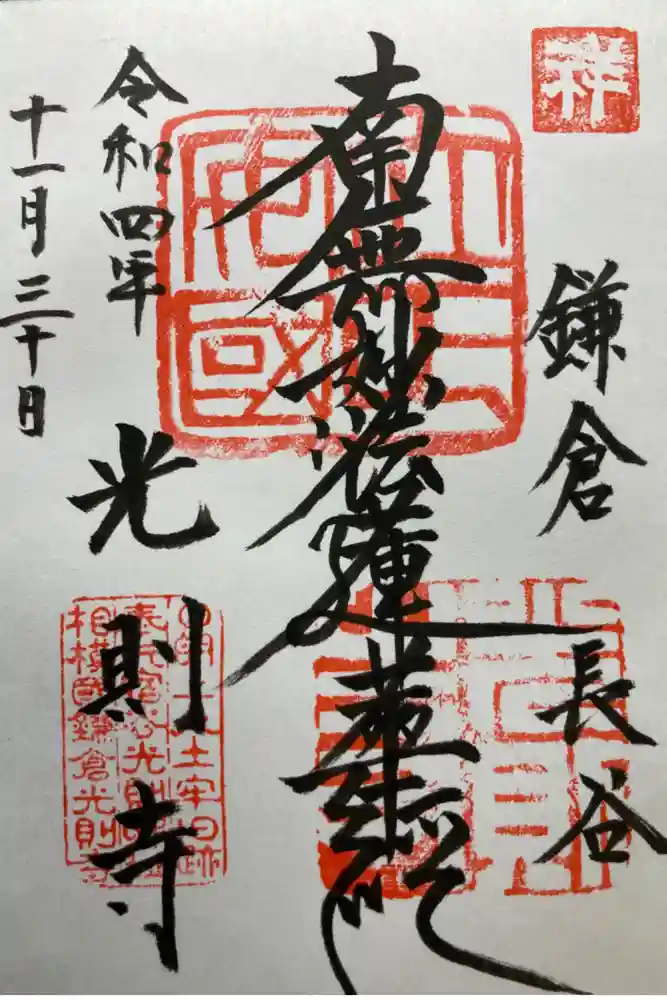 祥
鎌倉
長谷
南無妙法蓮華経
令和四年
十一月三十日
光則寺
立正
安國
相模國鎌倉光則寺